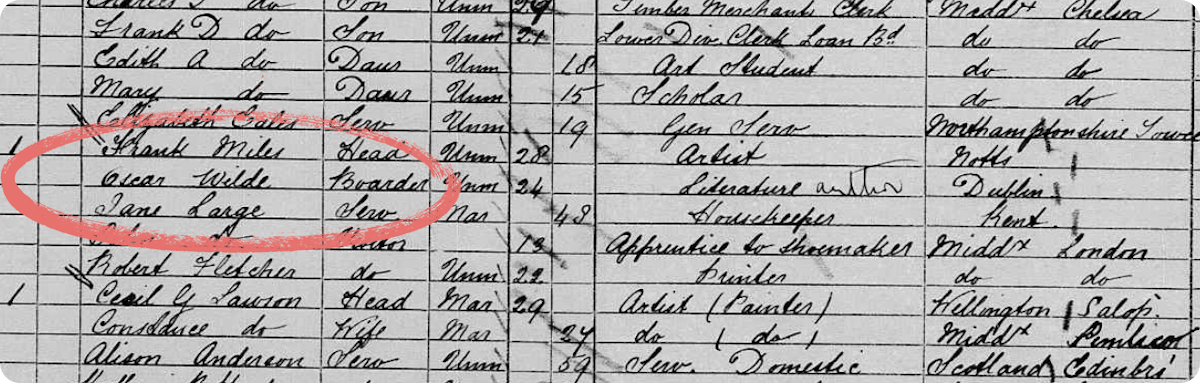 Charles do Son Unm 29 Timber Merchants Clerk Middx Chelsea
Frank D do Son Unm 21 Lower Div. Clerk Loan Bd do do
Edith A do Daur Unm 18 Art Student do do
Mary do Daur Unm 15 Scholar do do
Elizabeth Serv Unm 19 Gen Serv Northamptonshire
1 Frank Miles Head Unm 28 Artist Notts
Oscar Wilde Boarder Unm 24 Literature author Dublin
Jane Large Serv Mar 48 Housekeeper Kent
do Visitor 13 Apprentice to shoemaker Middx London
Robert Fletcher do Unm 22 Printer do do
1 Cecil G Lawson Head Mar 29 Artist (Painter) Wellington Salop.
Constance do Wife Mar 27 do (do) Middx Pimlico
Alison Anderson Serv Unm 59 Serv. Domestic Scotland Edinbrs